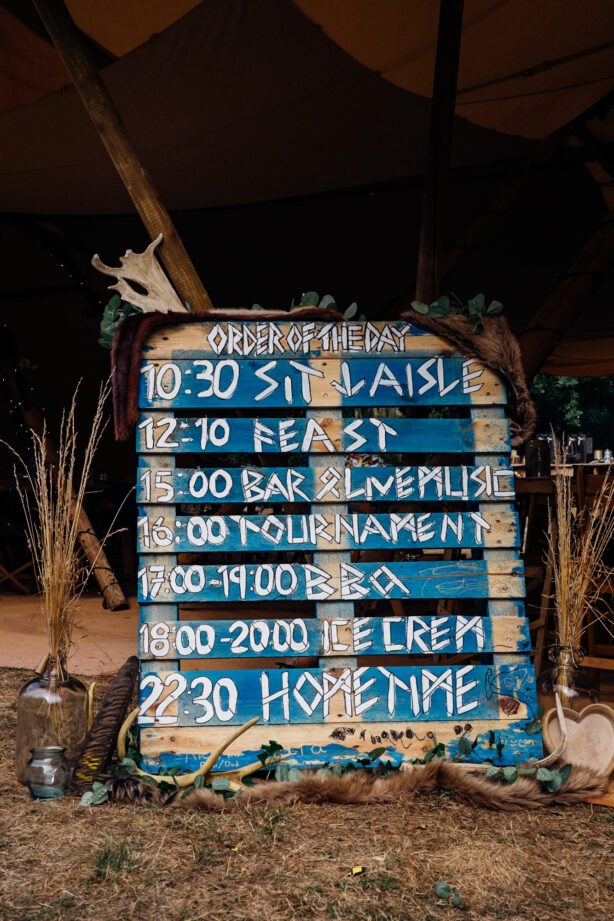 ORDER OF THE DAY
10:30 SIT I AISLE
12:10 FEAST
15:00 BAR & LIVE MUSIC
16:00 TOURNAMENT
17:00-19:00 BBQ
18:00-20:00 ICE CREM
22:30 HOMETIME